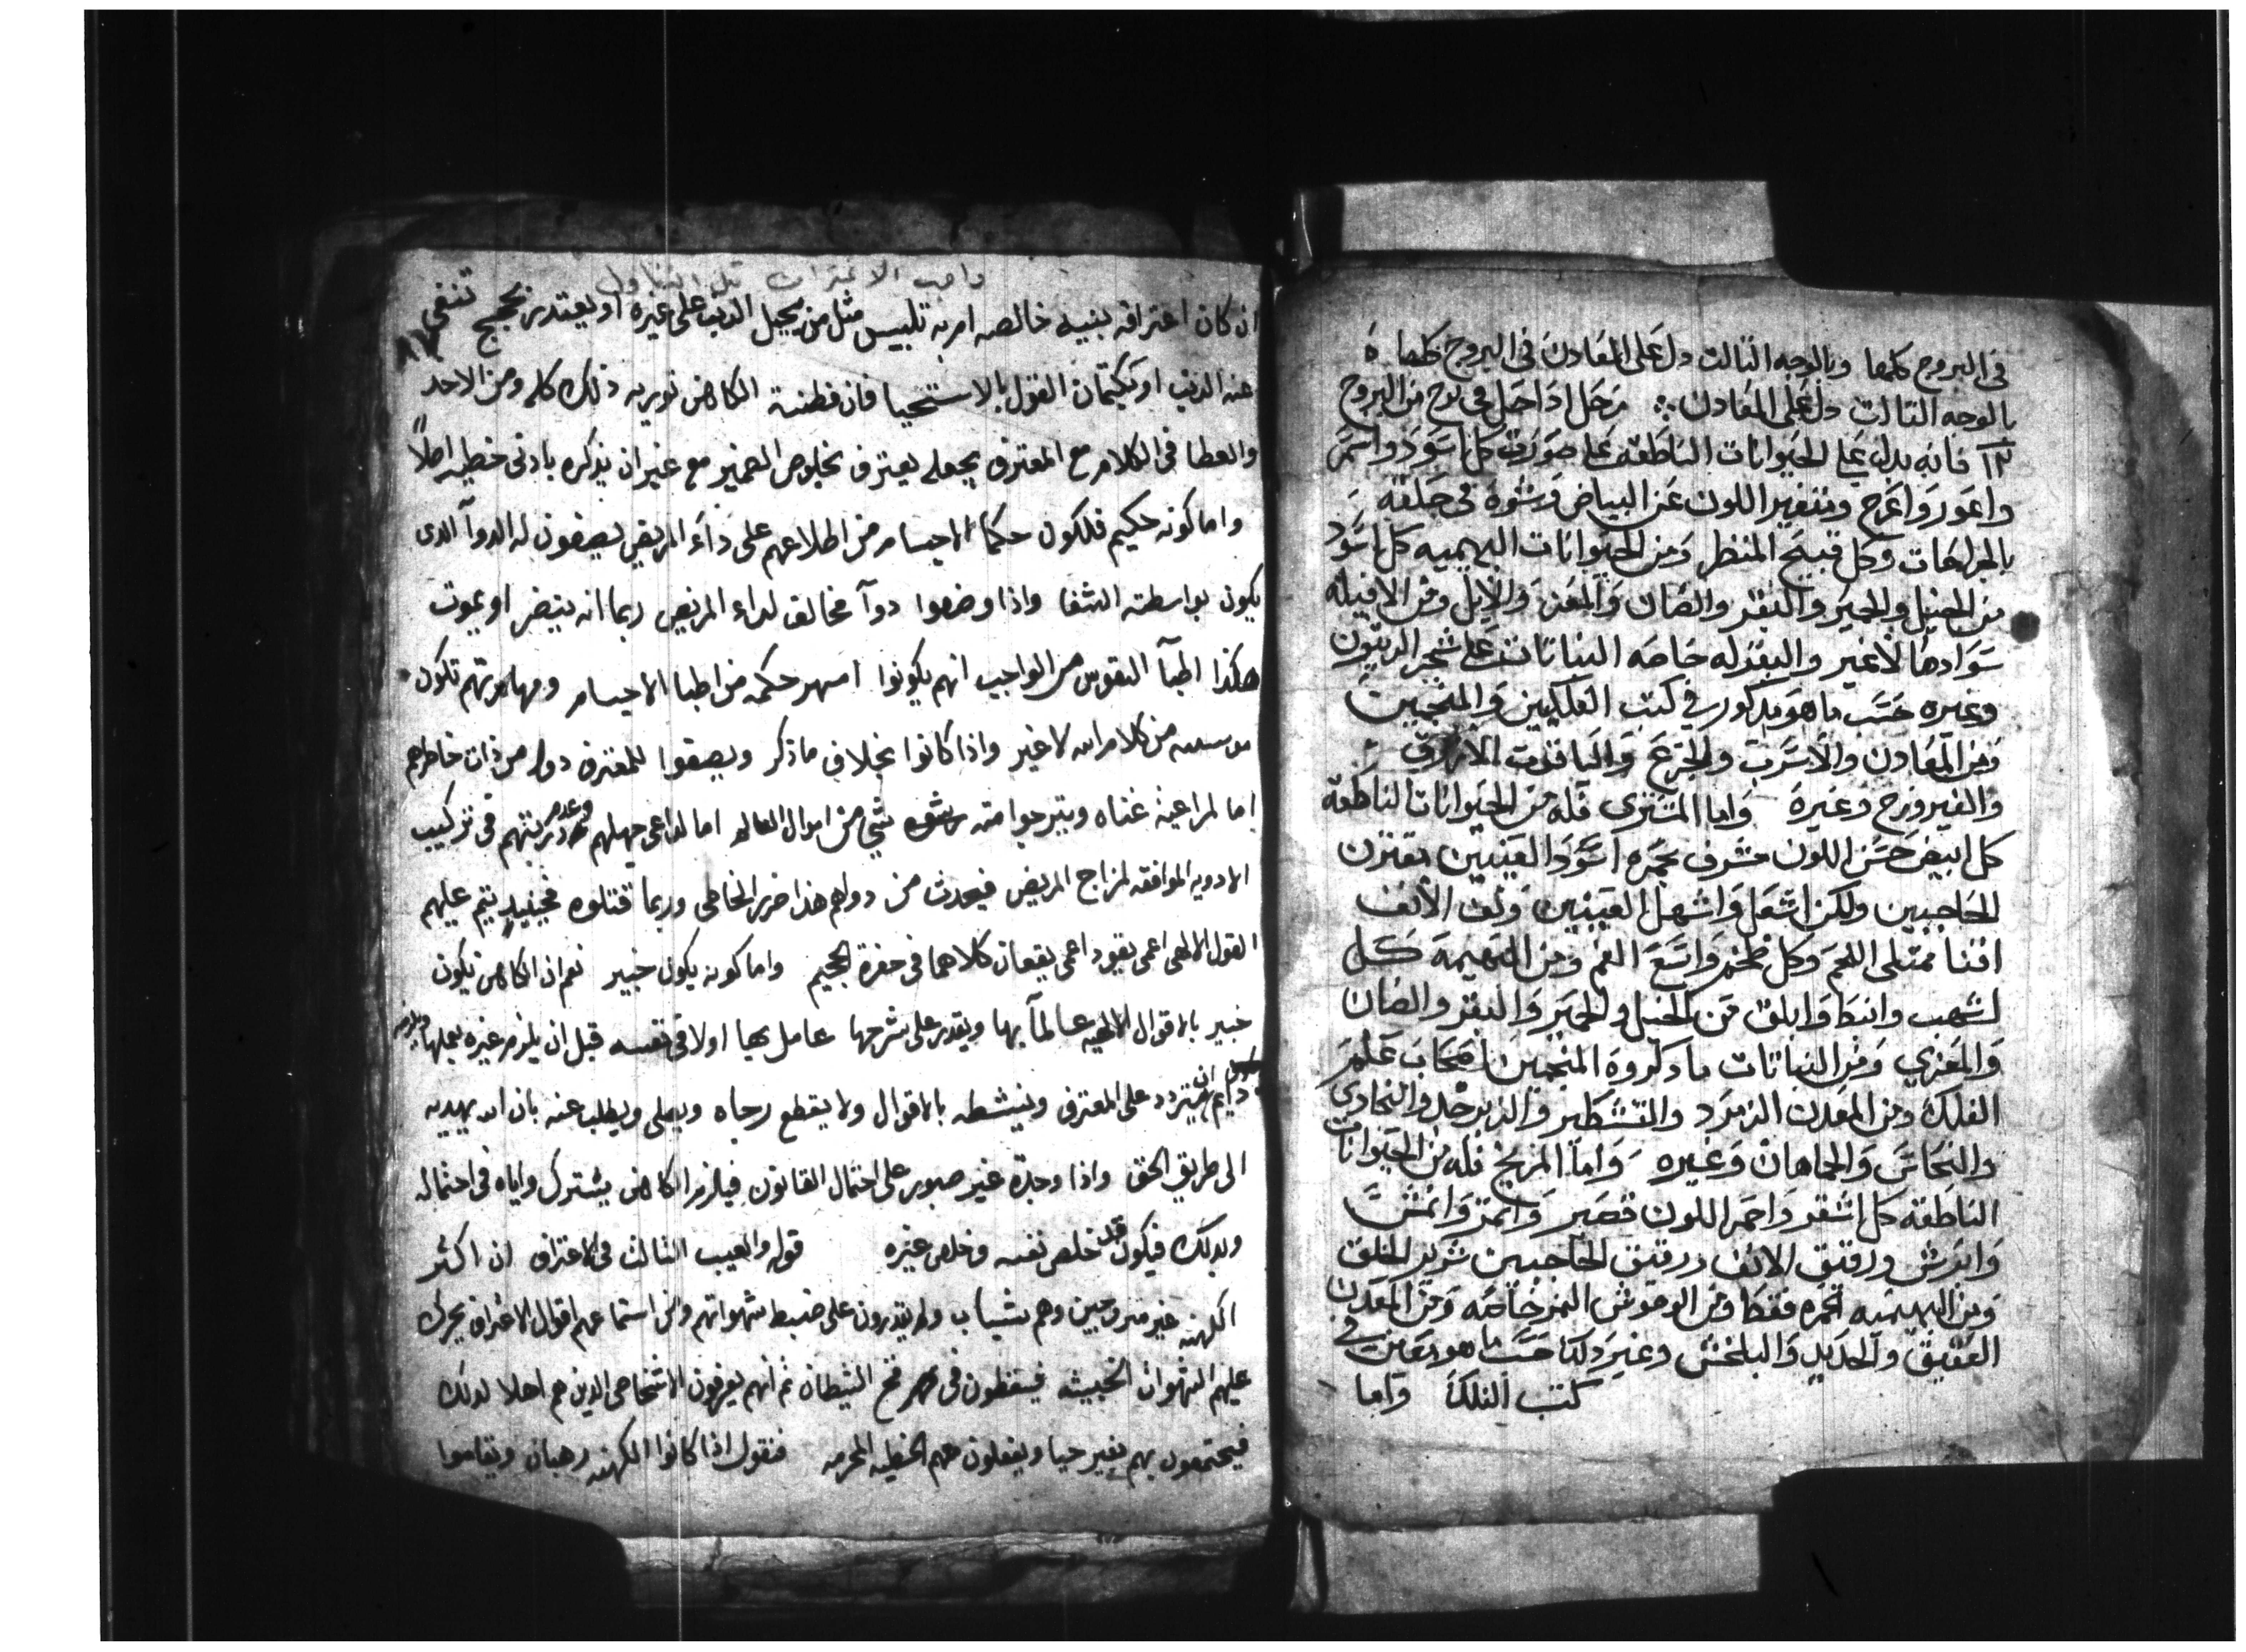 في البروج كلها وبالوجه الثالث دل على المعادن في البروج كلها ه
بالوجه الثالث دل على المعادن زحل اذا حل في برج من البروج
١٢ فانه يدل على الحيوانات الناطقة على صورة كل اسود واسمر
واعور واعرج ومتغير اللون عن البياض وشوه في خلقته
بالجراحات وكل قبيح المنظر ومن الحيوانات البهيميه كل اسود
من الخيل والحمير والبقر والضان والمعز والابل ومن الافيله
سوادها لا غير والبقر له خاصه النباتات على شجر الزيتون
وغيره حسب ما هو مدكور في كتب الفلكيين والمنجمين
ومن المعادن والاسرب والجزع والياقوت الازرق
والفيروزج وغيره واما المشترى فله من الحيوانات الناطقة
كل ابيض حسن اللون مشرف بحمره اسود العينين مقترن
الحاجبين ولكن اشعل واشهل العينين وفى الانف
اقنا ممتلى اللحم وكل واسع الفم ومن البهيمة كل
اشهب وانبط وابلق من الخيل والحمير والبقر والضان
والمعزي ومن النباتات ما دكروه المنجمين اصحاب علم
الفلك ومن المعدن الزمرد والزبرجد والبخادي
والنحاس والماهان وغيره واما المريخ فله من الحيوانات
الناطقة كل اشقر واحمر اللون قصير وانمش
وابرش ورقيق الانف ورقيق الحاجبين شرير الخلق
ومن البهيميه احمره فقط ومن الوحوش النمر خاصه ومن المعدن
العقيق والحديد والبلخش وغير دلك حسب ما هو في
كتب الفلك واما
واجب الاعتراف قبل التناول
ان كان اعترافه بنيه خالصه ام به تلبيس مثل من يحيل الذنب على غيره او يعتدر بحجج تنفى
٨٧
عنه الذنب او بكتمان القول بالاستحيا فان فطنة الكاهن توريه ذلك كله ومن الاخد
والعطا في الكلام مع المعترف يجعله يعترف بخلوص الضمير مع غير ان يذكره بادنى خطيه اصلاً
واما كونه حكيم فلكون حكما الاجسام من اطلاعهم على داء المريض يصفون له الدوآ الدى
يكون بواسطته الشفا واذا وصفوا دوآ مخالف لداء المريض ربما انه يتضر او يموت
هكذا اطبآ النفوس من الواجب انهم يكونوا امهر حكمه من اطبا الاجسام ومهارتهم تكون
من كلام الله لا غير واذا كانوا بخلاف ما ذكر ويصفوا للمعترف دوا من ذات خاطرهم
اما لمراعية غناه ويترجوا منه رشوه شي من اموال العالم اما لداعى جهلهم وعدم دريتهم في تركيب
الادويه الموافقه لمزاج المريض فيحدث من دواهم هذا ضرر الخاطى وربما قتلوه فحينيد يتم عليهم
القول الالهى اعمى يقود اعمى يقعان كلاهما في حفرة الجحيم واما كونه يكون خبير نعم ان الكاهن يكون
خبير بالاقوال الالهيه عالماً بها ويقدر على شرحها عامل بها اولا في نفسه قبل ان يلزم غيره بعملها
دايم ان يتردد على المعترف وينشطه بالاقوال ولا يقطع رجاه ويصلى ويطلب عنه بان الله يهديه
الى طريق الحق واذا وجده غير صبور على احتمال القانون فيلزم الكاهن يشترك واياه في احتماله
وبدلك فيكون قد خلص نفسه وخلص غيره قوله والعيب الثالث في الاعتراف ان اكثر
الكهنه غير متزوجين وهم شباب ولم يقدرون على ضبط شهواتهم ومن استماعهم اقوال الاعتراف يحرك
عليهم الشهوات الخبيثه فيسقطون في فخ الشيطان ثم انهم يعرفون الاشخاص الدين هم اهلا لدلك
فيجتمعون بهم بغير حيا ويفعلون معهم الخطيه المحرمه فنقول اذا كانوا الكهنه رهبان ويقاموا